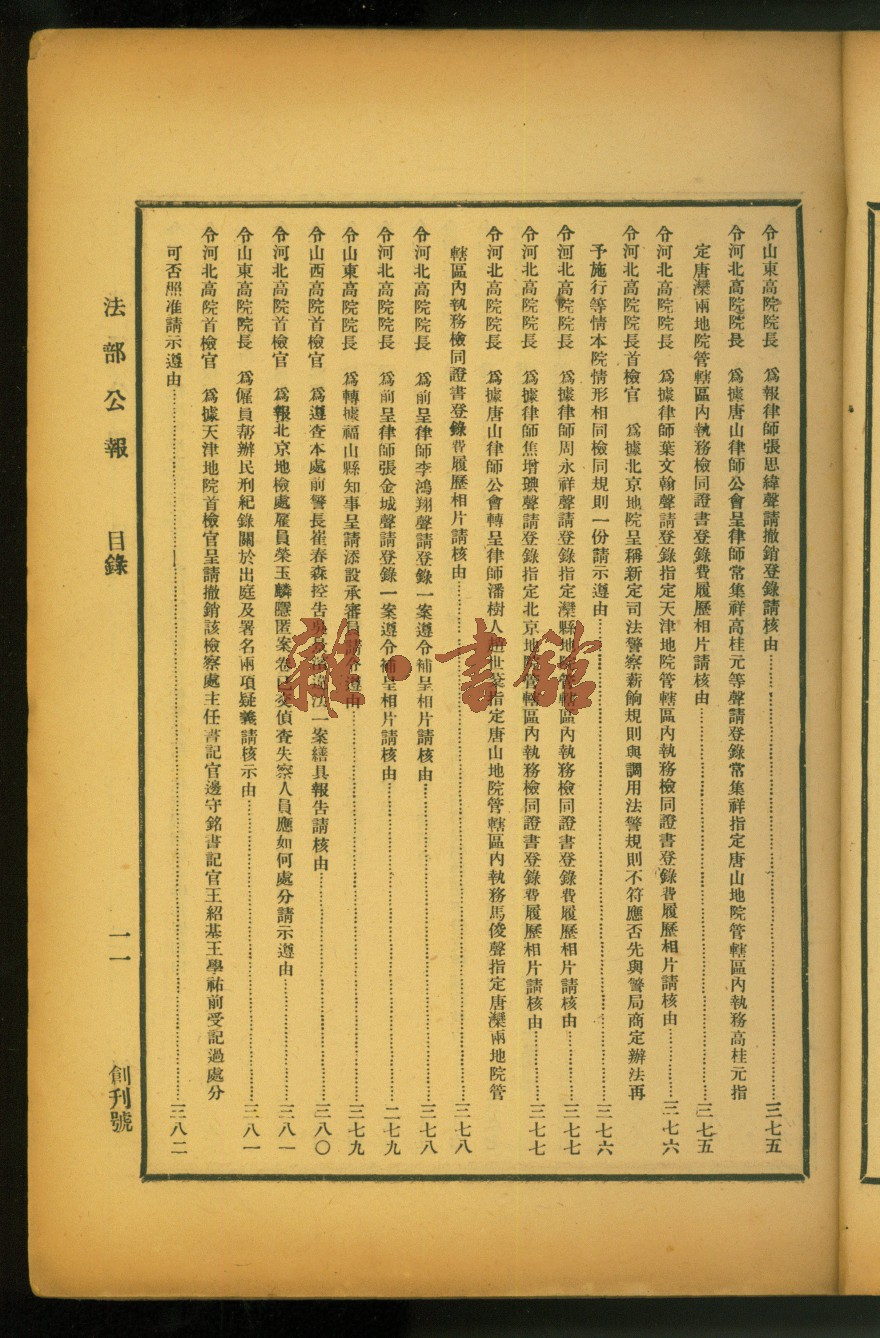 令山東高院院長　爲報律師張思緯聲請撤銷登錄請核由……三七五
令河北高院院長　爲據唐山律師公會呈律師常集祥高桂元等聲請登錄常集祥指定唐山地院管轄區內執務高桂元指
定唐灤兩地院管轄區內執務檢同證書登錄費履歷相片請核由……三七五
令河北高院院長　爲據律師葉文翰聲請登錄指定天津地院管轄區內執務檢同證書登錄費履歷相片請核由……三七六
令河北高院院長首檢官　爲據北京地院呈稱新定司法警察薪餉規則與調用法警規則不符應否先與警局商定辦法再
予施行等情本院情形相同檢同規則一份請示遵由……三七六
令河北高院院長　爲據律師周永祥聲請登錄指定灤縣地院管轄區內執務檢同證書登錄費履歷相片請核由……三七七
令河北高院院長　爲據律師焦增琠聲請登錄指定北京地院管轄區內執務檢同證書登錄費履歷相片請核由……三七七
令河北高院院長　爲據唐山律師公會轉呈律師潘樹人趙世棻指定唐山地院管轄區內執務馬俊聲指定唐灤兩地院管
轄區內執務檢同證書登錄費履歷相片請核由……三七八
令河北高院院長　爲前呈律師李鴻翔聲請登錄一案遵令補呈相片請核由……三七八
令河北高院院長　爲前呈律師張金城聲請登錄一案遵令補呈相片請核由……二七九
令山東高院院長　爲轉據福山縣知事呈請添設承審員請令遵由……三七九
令山西高院首檢官　爲遵查本處前警長崔春森控告吳違法一案繕具報告請核由……三八〇
令河北高院首檢官　爲報北京地檢處雇員榮玉麟隱匿案卷已交偵查失察人員應如何處分請示遵由……三八一
令山東高院院長　爲僱員帮辦民刑紀錄關於出庭及署名兩項疑義請核示由……三八一
令河北高院首檢官　爲據天津地院首檢官呈請撤銷該檢察處主任書記官邊守銘書記官王紹基王學祐前受記過處分
可否照准請示遵由……三八二
法部公報　目錄　一一　創刊號
雜·書館